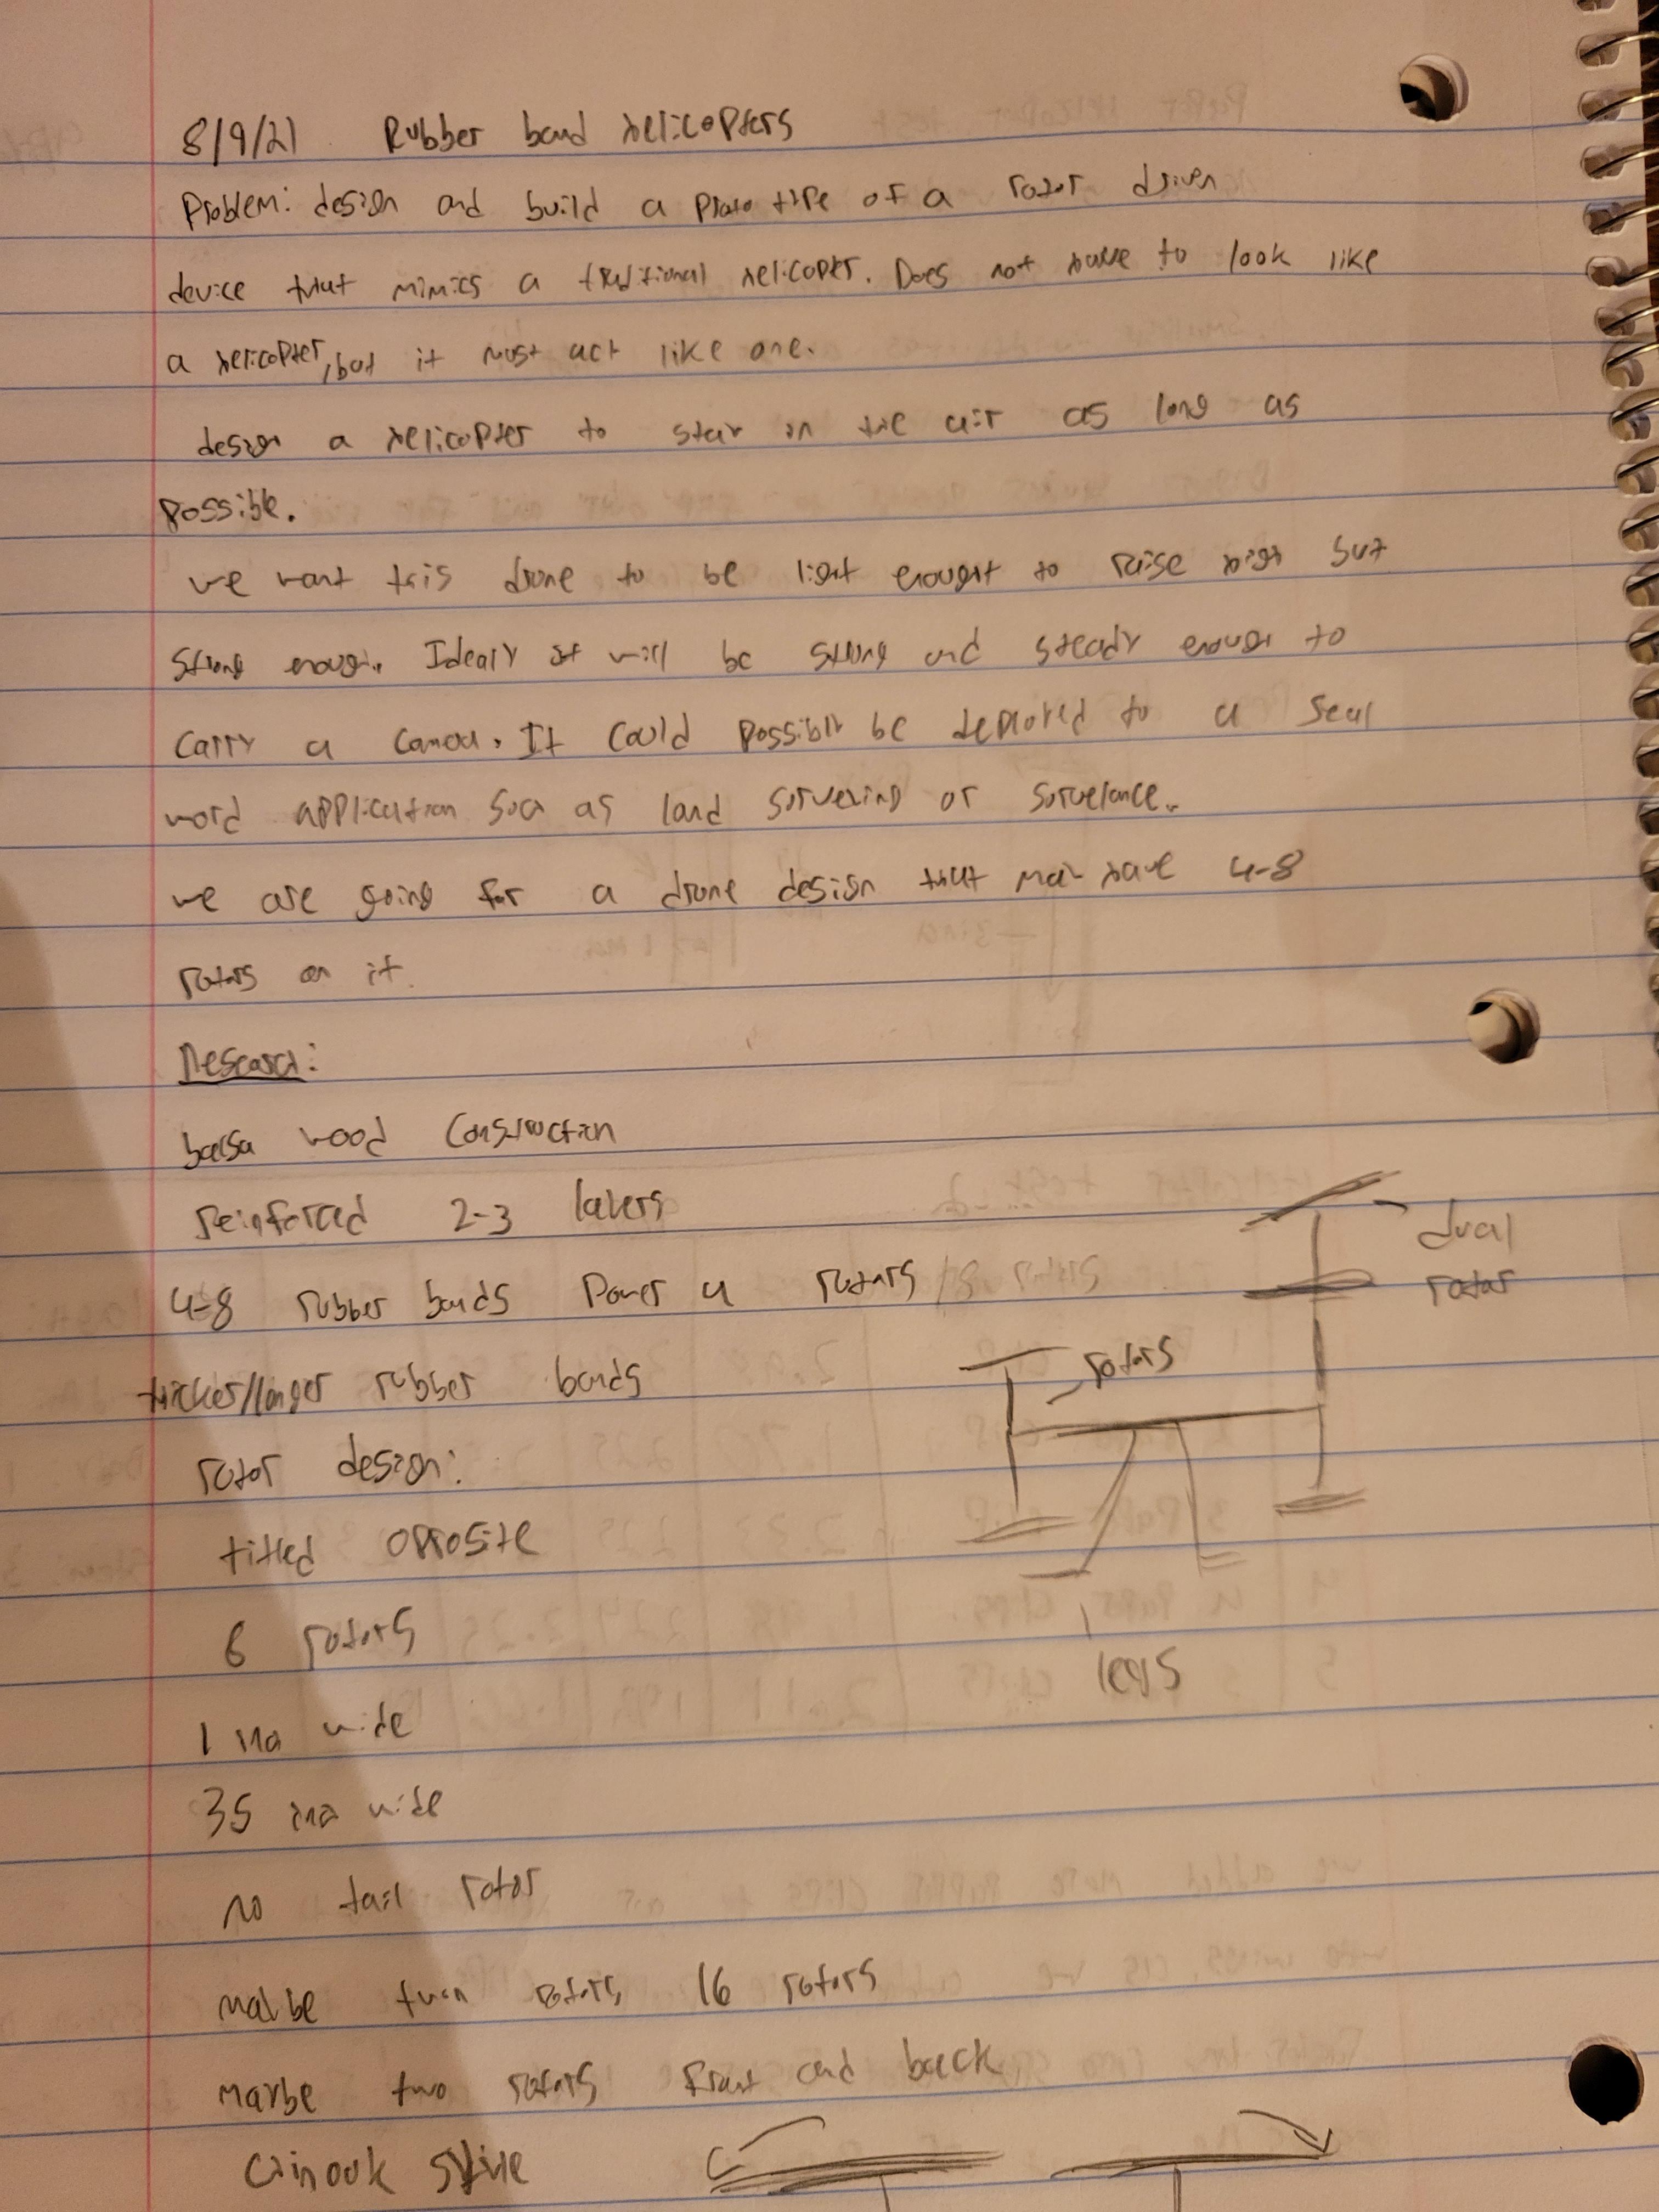 8/9/21 Rubber band helicopters
Problem: design and build a prototipe of a rotor driven
device that mimics a traditional helicopter. Does not have to look like
a helicopter, but it must act like one.
design a helicopter to stay in the air as long as
possible.
we want this drone to be light enought to raise high but
strong enough. Idealy it will be strong and steady enough to
carry a camera. It could possibly be deployed to a real
word application such as land surveying or survelance.
we are going for a drone design that may have 4-8
rotors on it.
Research:
balsa wood construction
reinforced 2-3 layers
4-8 rubber bands power 4 rotors/8 rotors
dual
rotor
thicker/longer rubber bands
rotors
rotor design:
titled opposite
6 rotors
legs
1 inch wide
35 inch wide
no tail rotor
maybe turn rotors, 16 rotors
maybe two rotors front and back
Chinook style